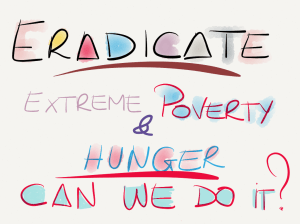 ERADICATE
EXTREME POVERTY
&
HUNGER
CAN WE DO IT?